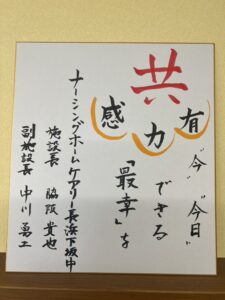 共
有 力 感
"今" "今日"
できる
「最幸」を
ナーシングホーム ケアリー長浜下坂中
施設長 脇阪 貴也
副施設長 中川 勇工